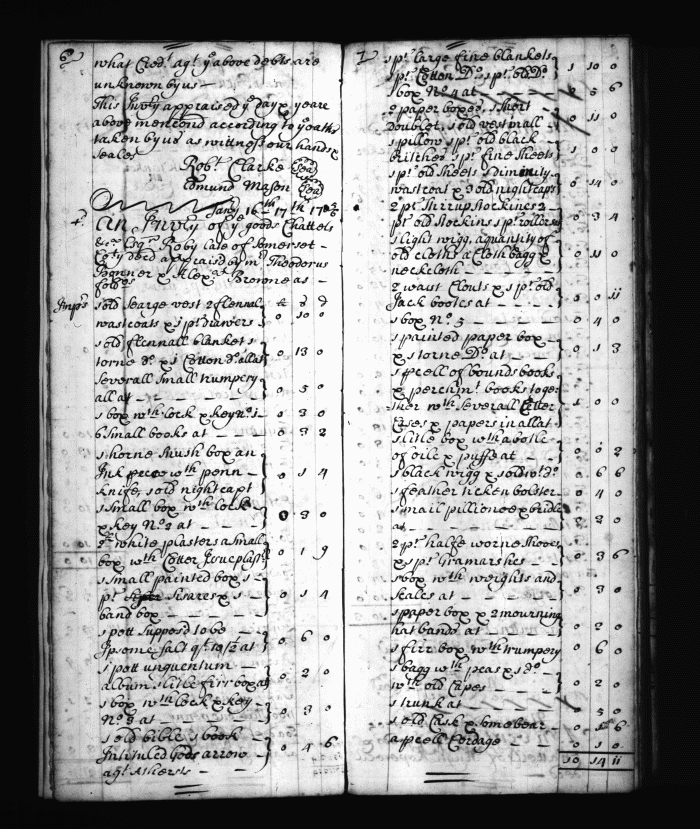 6
what Cred.t ag.t ye above debts are
unknown by us —
This Invty appraised ye day & yeare
above mencond according to ye oaths
taken by us as wittness our hands &
seales
Rob.t Clarke (Sea)
Edmund Mason (Sea)
Jan.y 16th 17th
4 An Invty of ye goods Chattels
Roby late of Somerset
Co.ty decd appraised by Theodorus
& Alex.r Browne as —
Imp.s 1 old Searge vest 2 flennal £ s d
wastcoats & 1 p.r drawers 0 10 0
1 old flennall blanket 1
torne do & 1 Cotten do all at 0 13 0
Severall small trumpery
all at — — — 0 5 0
1 box wth lock & key No 1 — 0 3 0
6 small books at — — 0 3 2
1 horne Inkh box an
Ink wth penn
knife, 1 old nightcapt 0 1 4
1 small box wth lock
& key No 2 at — — — 0 3 0
2 white plasters a small
box wth 0 1 9
1 small painted box 1
p.r Sisares & 1 —
band box — — — 0 1 4
1 pott Suppos'd to be
Ipsome salt q.t 10/2 at 0 6 0
1 pott unguentum —
album 1 litle firr box at 0 2 0
1 box wth lock & key
No 3 at — — — 0 3 0
1 old bible 1 book
Intituled Gods arrow
ag.t Atheists — — 0 4 6
7
1 p.r large fine blankets
1 p.r Cotten Do 1 p.r old Do 1 10 0
1 box No 4 at — — 0 5 6
2 paper boxes, 1 short
Doublet, 1 old vest in all 0 11 0
1 pillow 1 p.r old black
britches 1 p.r fine sheets 1 0 0
1 p.r old sheets 1 Diminity
wastcoat & 3 old nightcaps 0 14 0
2 p.r Stirrup Stockines 2
p.r old Stockins 1 p.r rollers 0 3 4
1 light wigg, a quantity of
old cloths a Cloth bagg &
neckcloth — — — 0 11 0
2 wast Clouts & 1 p.r old
Jack bootes at — — 0 0 11
1 box No 5 — — — 0 4 0
1 painted paper box
& 1 torne Do at — — 0 1 3
1 pcell of bounds books
& perchmt books toge
ther wth severall Letter
Cases & papers in all at 1 0 0
1 litle box wth a botle
of oile & puffe at — — 0 0 2
1 black wigg & 1 old wt do 0 6 6
1 feather ticken bolster 0 4 0
1 small pillionee & bridle
at — — — — 0 2 0
2 p.r halfe worne shooes
1 p.r Gramashes — — 0 3 6
1 box wth weights and
scales at — — — 0 3 0
1 paper box & 2 mourning
hatbands at — — 0 2 0
1 firr box wth trumpery 0 6 0
1 bagg wth peas & 1 do
wth old Capes — — 0 2 0
1 trunk at — — 0 5 0
1 old Cask & some bear 0 1 6
a pcell Cordage — — 0 1 0
10 14 11